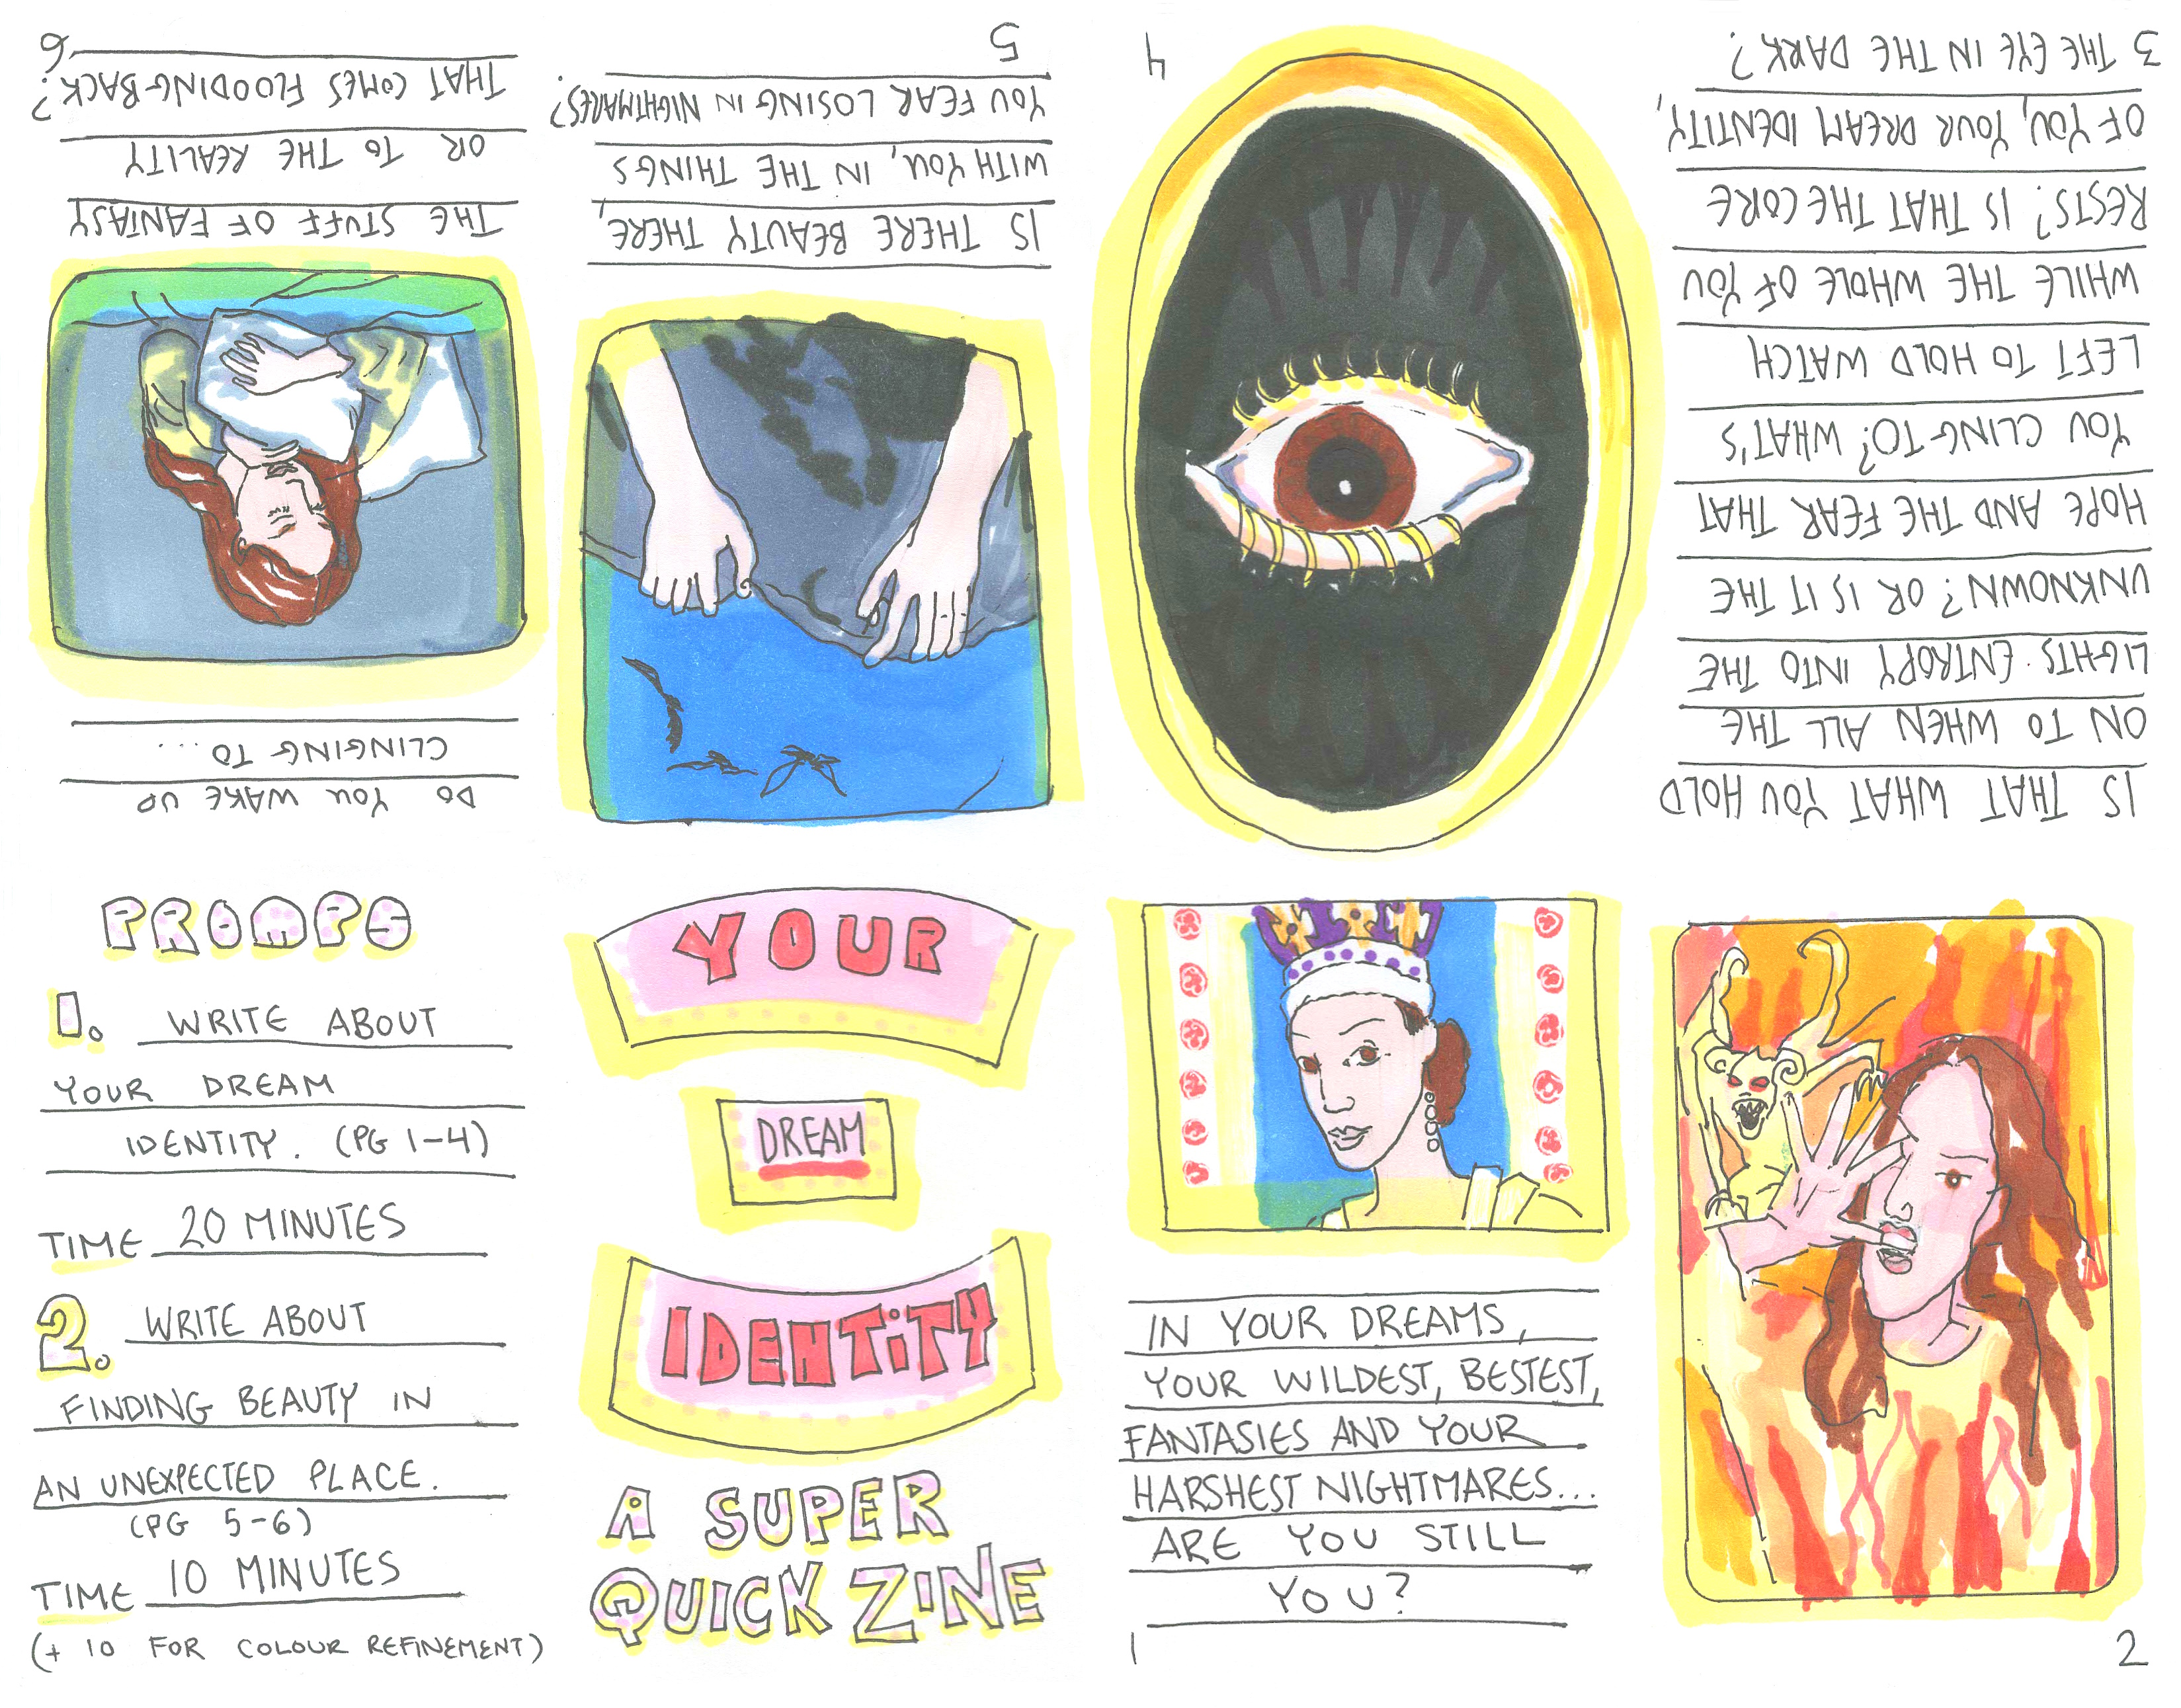 YOUR
DREAM
IDENTITY
A SUPER
QUICK ZINE
IN YOUR DREAMS,
YOUR WILDEST, BESTEST,
FANTASIES AND YOUR
HARSHEST NIGHTMARES...
ARE YOU STILL
YOU?
1
2
IS THAT WHAT YOU HOLD
ON TO WHEN ALL THE
LIGHTS ENTROPY INTO THE
UNKNOWN? OR IS IT THE
HOPE AND THE FEAR THAT
YOU CLING TO? WHAT'S
LEFT TO HOLD WATCH
WHILE THE WHOLE OF YOU
RESTS? IS THAT THE CORE
OF YOU, YOUR DREAM IDENTITY,
3 THE EYE IN THE DARK?
4
IS THERE BEAUTY THERE,
WITH YOU, IN THE THINGS
YOU FEAR LOSING IN NIGHTMARES?
5
DO YOU WAKE UP
CLINGING TO...
THE STUFF OF FANTASY
OR TO THE REALITY
THAT COMES FLOODING BACK?
6
PROMPS
1. WRITE ABOUT
YOUR DREAM
IDENTITY. (PG 1-4)
TIME 20 MINUTES
2. WRITE ABOUT
FINDING BEAUTY IN
AN UNEXPECTED PLACE.
(PG 5-6)
TIME 10 MINUTES
(+ 10 FOR COLOUR REFINEMENT)